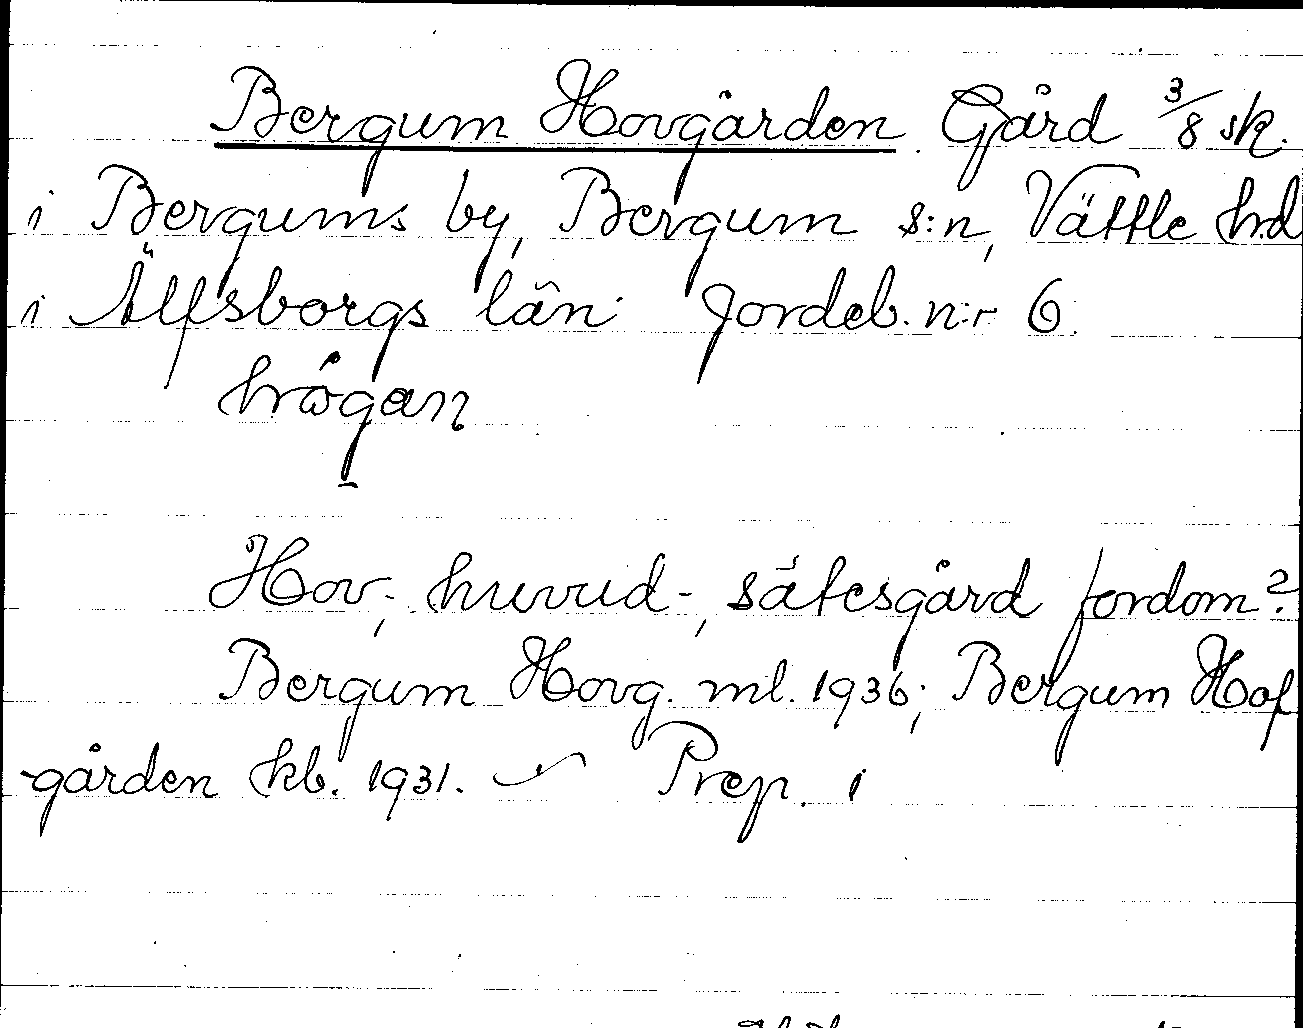 Bergum Hovgården. Gård 3/8 sk.
i Bergums by, Bergum s:n, Vättle hd
i Älfsborgs län. Jordeb. n:r 6.
Hov-, huvud-, sätesgård fordom?
Bergum Hovg. ml. 1936; Bergum Hof
-gården kb. 1931. Prep. i